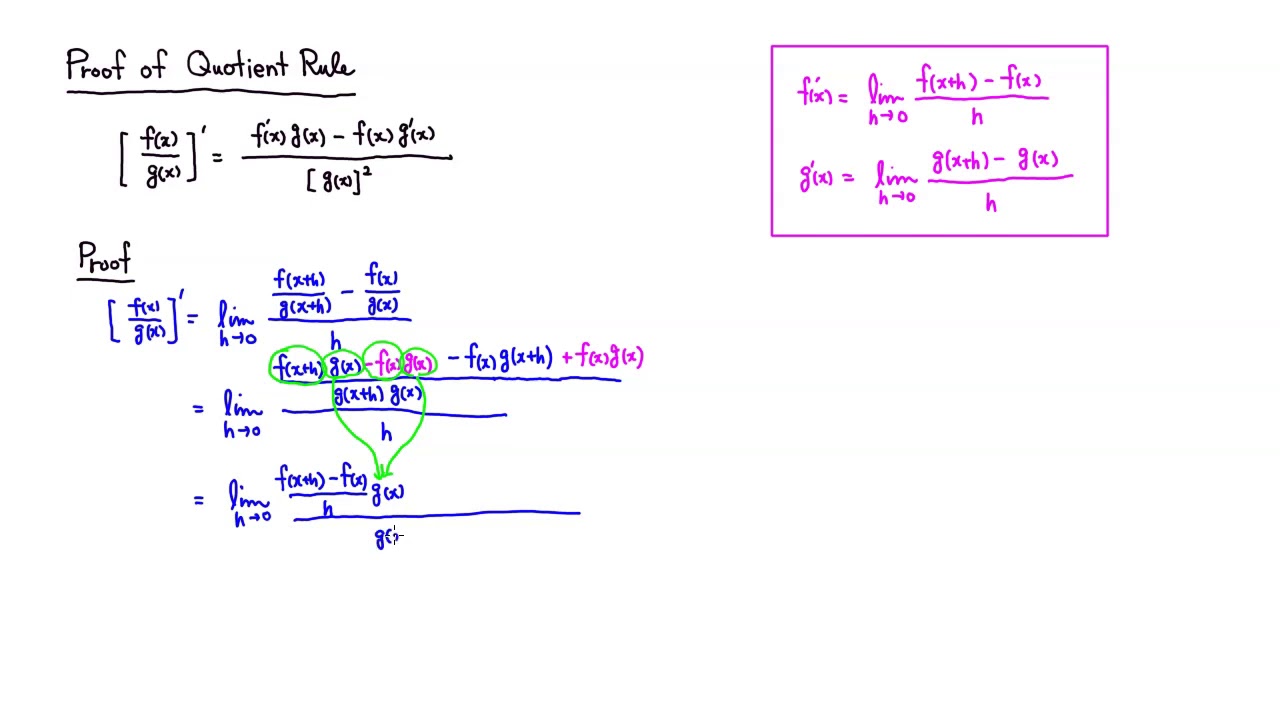 Proof of Quotient Rule
[f(x)/g(x)]' = (f'(x) g(x) - f(x) g'(x)) / [g(x)]²
f'(x) = lim h→0 (f(x+h) - f(x)) / h
g'(x) = lim h→0 (g(x+h) - g(x)) / h
Proof
[f(x)/g(x)]' = lim h→0 (f(x+h)/g(x+h) - f(x)/g(x)) / h
= lim h→0 ((f(x+h) g(x) - f(x) g(x) - f(x) g(x+h) + f(x) g(x)) / (g(x+h) g(x))) / h
= lim h→0 ((f(x+h) - f(x)) / h g(x)) / g(